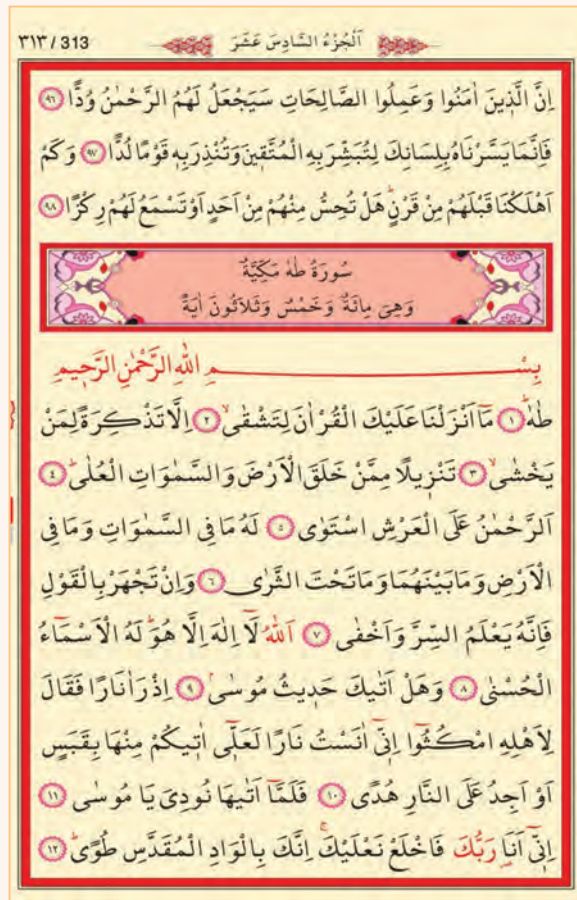 ٣١٣ / 313 اَلْجُزْءُ السَّادِسَ عَشَرَ
اِنَّ الَّذ۪ينَ اٰمَنُوا وَعَمِلُوا الصَّالِحَاتِ سَيَجْعَلُ لَهُمُ الرَّحْمٰنُ وُدًّا ٩٦
فَاِنَّمَا يَسَّرْنَاهُ بِلِسَانِكَ لِتُبَشِّرَ بِهِ الْمُتَّق۪ينَ وَتُنْذِرَ بِه۪ قَوْمًا لُدًّا ٩٧ وَكَمْ
اَهْلَكْنَا قَبْلَهُمْ مِنْ قَرْنٍۜ هَلْ تُحِسُّ مِنْهُمْ مِنْ اَحَدٍ اَوْ تَسْمَعُ لَهُمْ رِكْزًا ٩٨
سُورَةُ طٰهٰ مَكِّيَّةٌ
وَهِيَ مِائَةٌ وَخَمْسٌ وَثَلَاثُونَ اٰيَةً
بِسْمِ اللّٰهِ الرَّحْمٰنِ الرَّح۪يمِ
طٰهٰۜ ١ مَٓا اَنْزَلْنَا عَلَيْكَ الْقُرْاٰنَ لِتَشْقٰىۙ ٢ اِلَّا تَذْكِرَةً لِمَنْ
يَخْشٰىۙ ٣ تَنْز۪يلًا مِمَّنْ خَلَقَ الْاَرْضَ وَالسَّمٰوَاتِ الْعُلٰىۜ ٤
اَلرَّحْمٰنُ عَلَى الْعَرْشِ اسْتَوٰى ٥ لَهُ مَا فِي السَّمٰوَاتِ وَمَا فِي
الْاَرْضِ وَمَا بَيْنَهُمَا وَمَا تَحْتَ الثَّرٰى ٦ وَاِنْ تَجْهَرْ بِالْقَوْلِ
فَاِنَّهُ يَعْلَمُ السِّرَّ وَاَخْفٰى ٧ اَللّٰهُ لَٓا اِلٰهَ اِلَّا هُوَۜ لَهُ الْاَسْمَٓاءُ
الْحُسْنٰى ٨ وَهَلْ اَتٰيكَ حَد۪يثُ مُوسٰىۢ ٩ اِذْ رَاٰ نَارًا فَقَالَ
لِاَهْلِهِ امْكُثُٓوا اِنّ۪ٓي اٰنَسْتُ نَارًا لَعَلّ۪ٓي اٰت۪يكُمْ مِنْهَا بِقَبَسٍ
اَوْ اَجِدُ عَلَى النَّارِ هُدًى ١٠ فَلَمَّٓا اَتٰيهَا نُودِيَ يَا مُوسٰى ١١
اِنّ۪ٓي اَنَا۬ رَبُّكَ فَاخْلَعْ نَعْلَيْكَۚ اِنَّكَ بِالْوَادِ الْمُقَدَّسِ طُوًىۜ ١٢